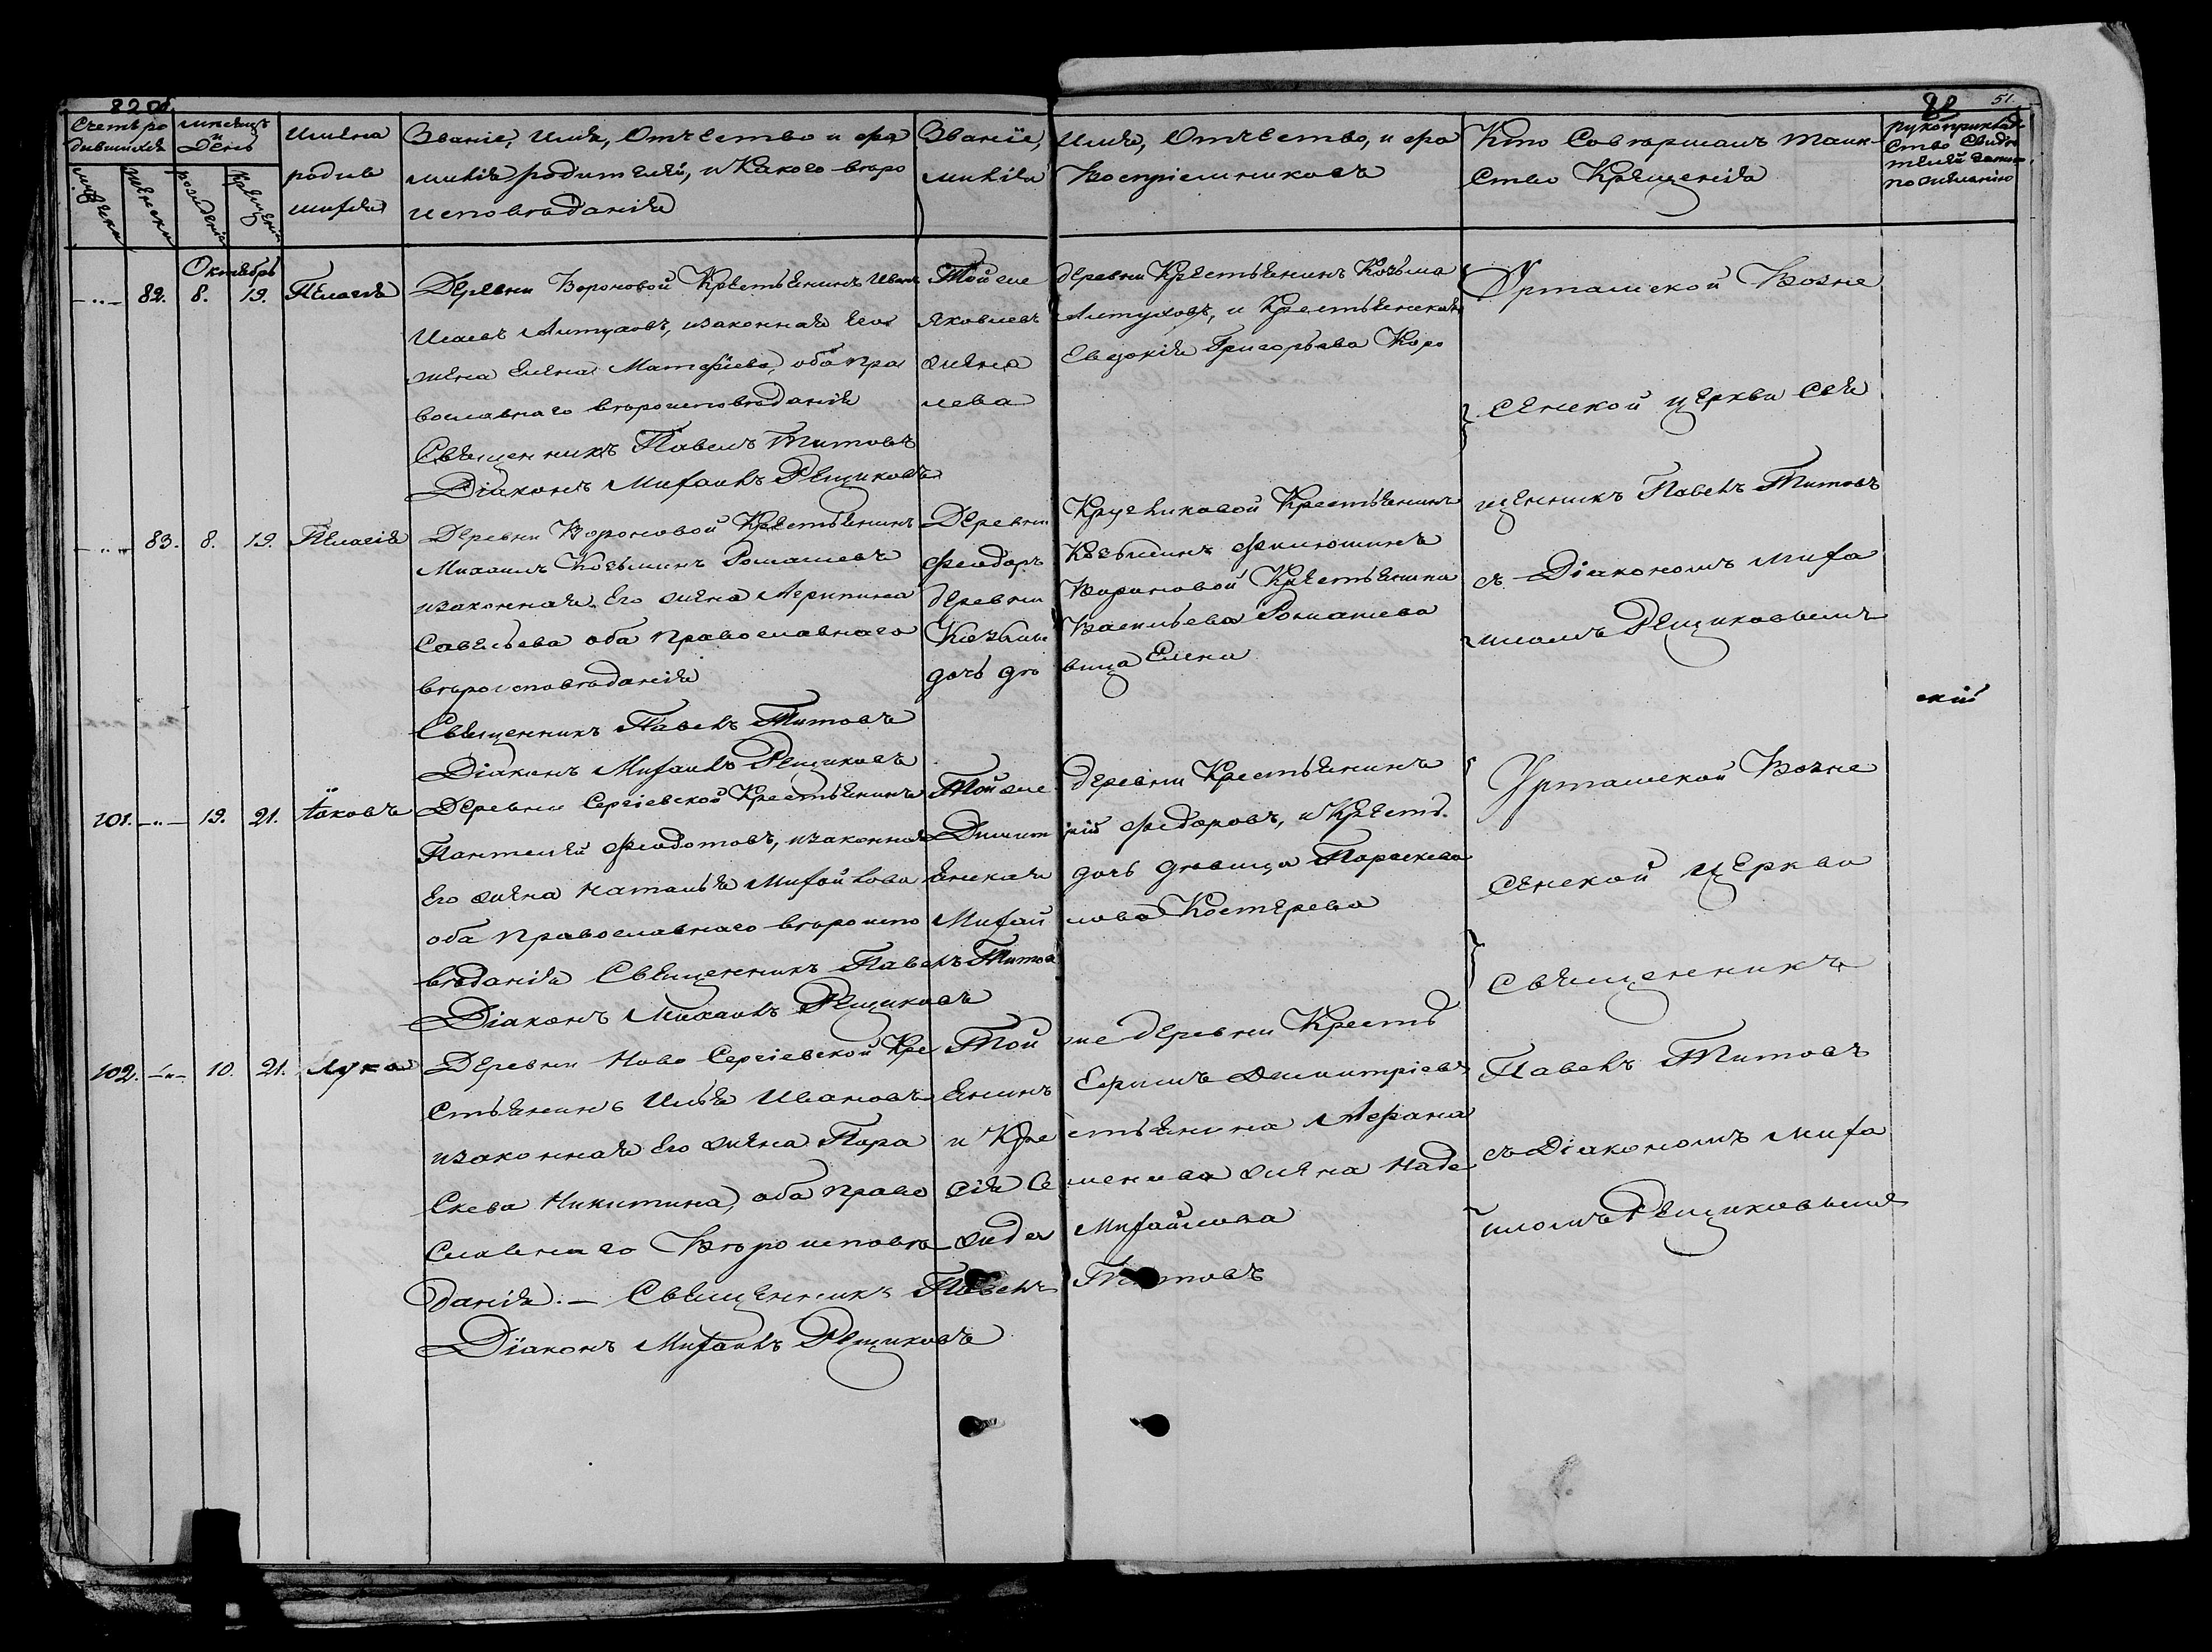 82 об.
82
51.
Счетъ ро
дившихся
мѣсяцъ
и
День
Имена
родив
шихся
Званіе, Имя, Отчество и фа
милія родителей, и Какого веро
исповѣданія
Званіе, Имя, Отчество, и фа
миліи Воспріемниковъ
Кто Совершалъ Таин
ство Крещенія
рукоприклад
ство Свидѣ
телей записи
по желанію
мужеска
женска
рожденія
крещенія
Октябрь
82. 8. 19. Пелагія
Деревни Вороновой Крестьянинъ Иванъ
Исаевъ Алтуховъ, изаконная Его
жена Елена Матфіева, оба пра
вославнаго вероисповѣданія
Священникъ Павелъ Титовъ
Діаконъ Михаилъ Рещиковъ
Той же деревни Крестьянинъ Козьма
Яковлевъ Алтуховъ, и Крестьянская
жена Евдокія Григорьева Коро
лева
Урташской Возне
сенской церкви Свя
щенникъ Павелъ Титовъ
съ Діакономъ Миха
иломъ Рещиковымъ
83. 8. 19. Пелагія
Деревни Вороновой Крестьянинъ
Михаилъ Козьминъ Ромашевъ
изаконная Его жена Агрипина
Савельева оба Православнаго
вероисповѣданія
Священникъ Павелъ Титовъ
Діаконъ Михаилъ Рещиковъ
Деревни Кругликовой Крестьянинъ
Феодоръ Козьминъ Филюшинъ
деревни Вороновой Крестьянина
Козьмы Васильева Ромашева
дочь дѣвица Елена
скій
101. 19. 21. Іаковъ
Деревни Сергіевской Крестьянинъ
Пантелей Феодотовъ, изаконная
Его жена Наталья Михайлова
оба Православнаго вероиспо
вѣданія Священникъ Павелъ Титовъ
Діаконъ Михаилъ Рещиковъ
Той же деревни Крестьянинъ
Димитрій Федоровъ, и Кресть
янская дочь дѣвица Параскева
Михайлова Костерева
Урташской Возне
сенской церкви
Священникъ
Павелъ Титовъ
съ Діакономъ Миха
иломъ Рещиковымъ
102. 10. 21. Лука
Деревни Ново Сергіевской Кре
стьянинъ Илья Ивановъ
изаконная Его жена Пара
скева Никитина, оба Право
славнаго Вероисповѣ
данія. — Священникъ Павелъ Титовъ
Діаконъ Михаилъ Рещиковъ
Той же деревни Кресть
янинъ Ефимъ Димитріевъ
и Крестьянина Афана
сія Семенова жена Наде
жда Михайлова